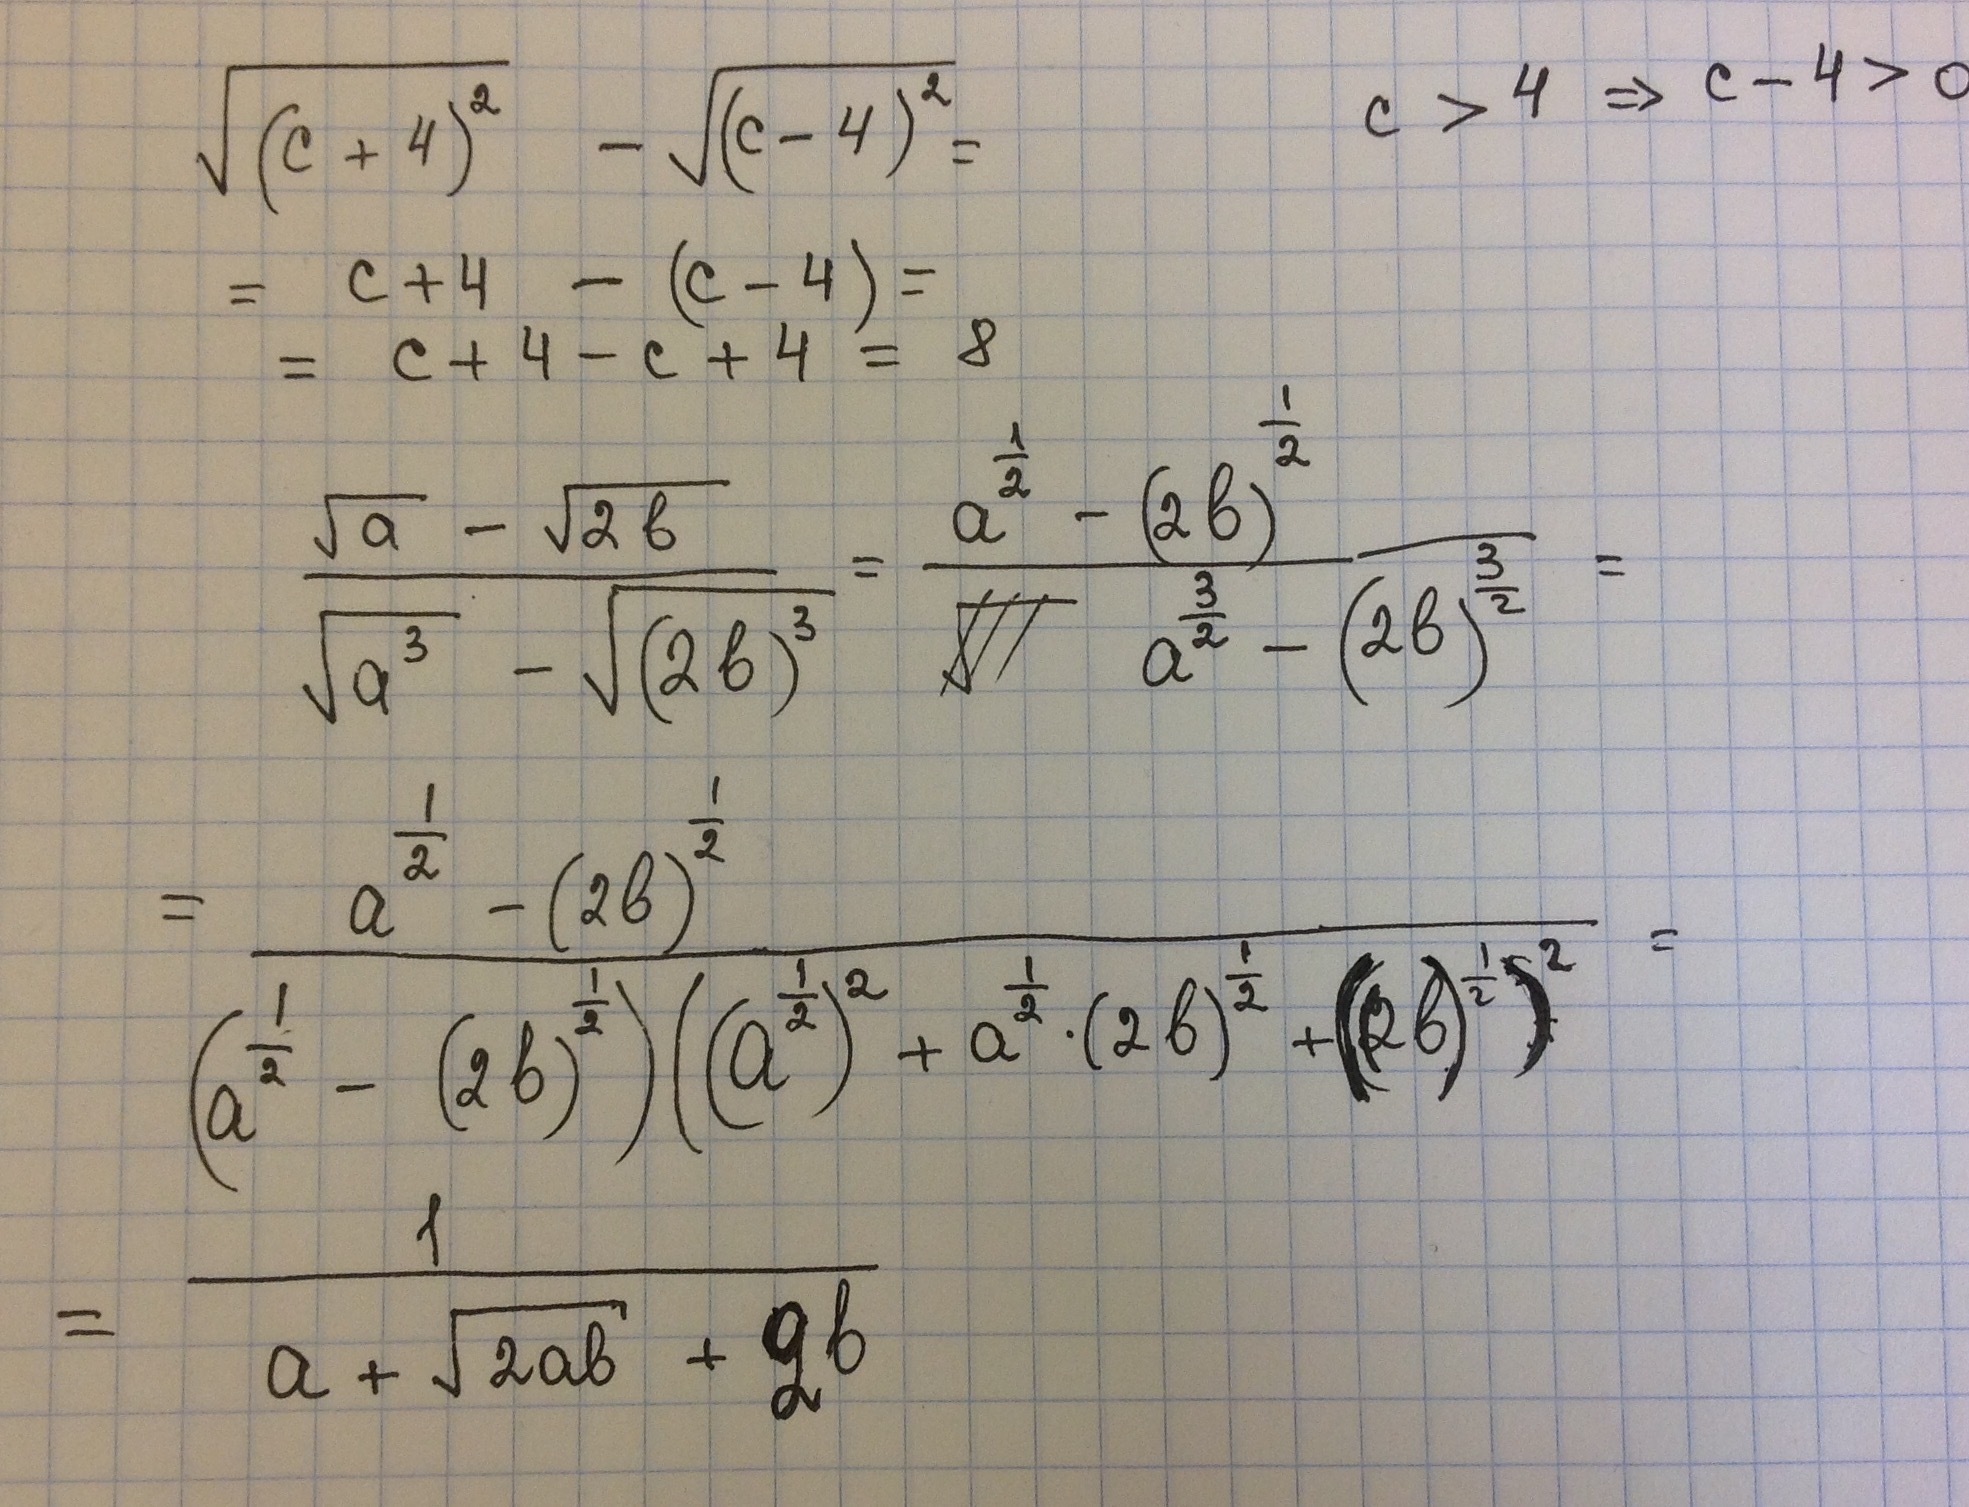 √(c+4)² - √(c-4)² = c > 4 ⇒ c-4 > 0
= c+4 - (c-4) =
= c+4-c+4 = 8
(√a - √2b)/(√a³ - √(2b)³) = (a^(1/2) - (2b)^(1/2))/(a^(3/2) - (2b)^(3/2)) =
= (a^(1/2) - (2b)^(1/2))/((a^(1/2) - (2b)^(1/2))((a^(1/2))² + a^(1/2)·(2b)^(1/2) + ((2b)^(1/2))²)) =
= 1/(a + √2ab + 2b)